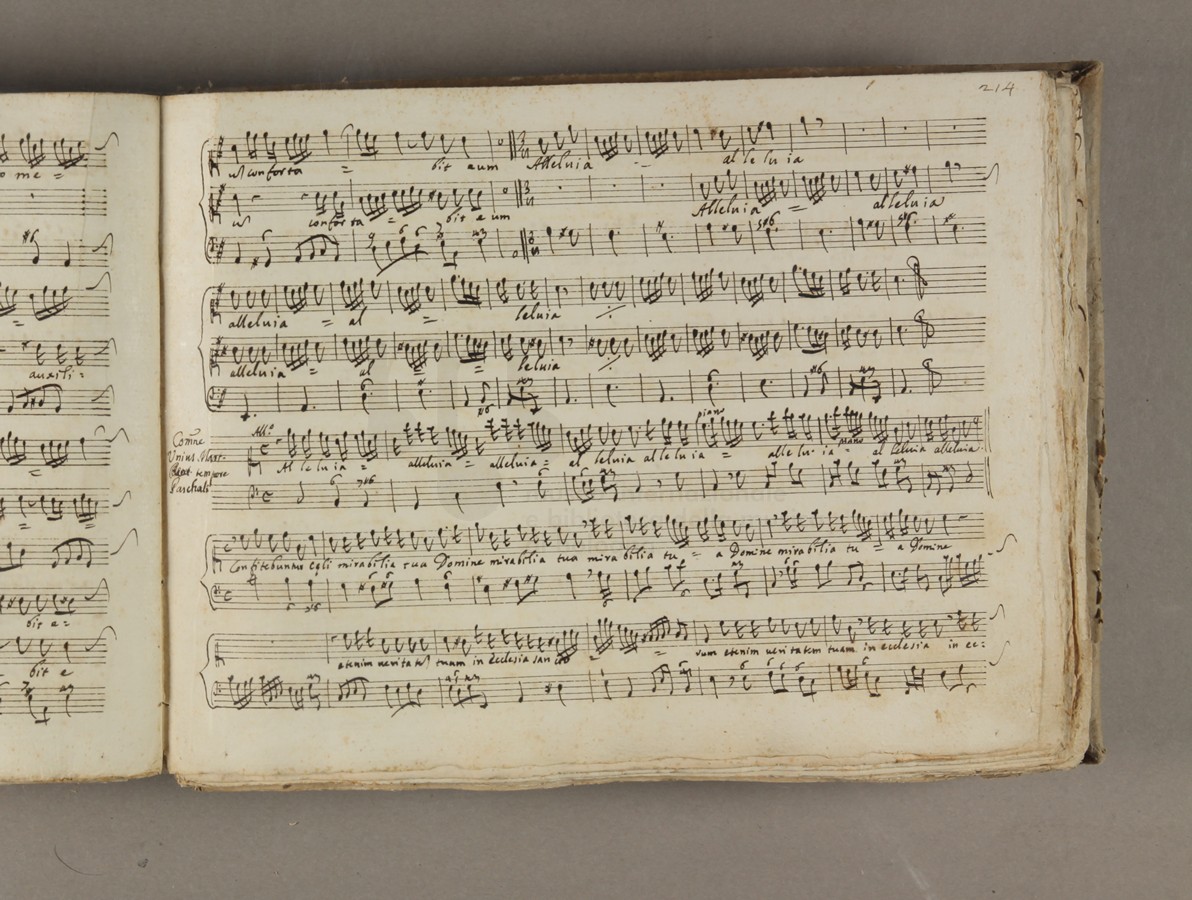 o me =
auxili =
bit e =
bit e
214
conforta = bit eum Alleluia = al le lu ia
conforta = bit eum Alleluia = alleluia
alleluia = al = leluia
alleluia = al = leluia
piano
All.o
Al le lu ia = alleluia = alleluia = al leluia al le lu ia = alle lu ia piano al leluia alleluia
Com̅ne
Unius Mart.
tempore
Paschali
Confitebuntur celi mirabilia tua Domine mirabilia tua mirabilia tu = a Domine mirabilia tu = a Domine
etenim veritatem tuam in ecclesia sancto = rum etenim veritatem tuam in ecclesia in ec =